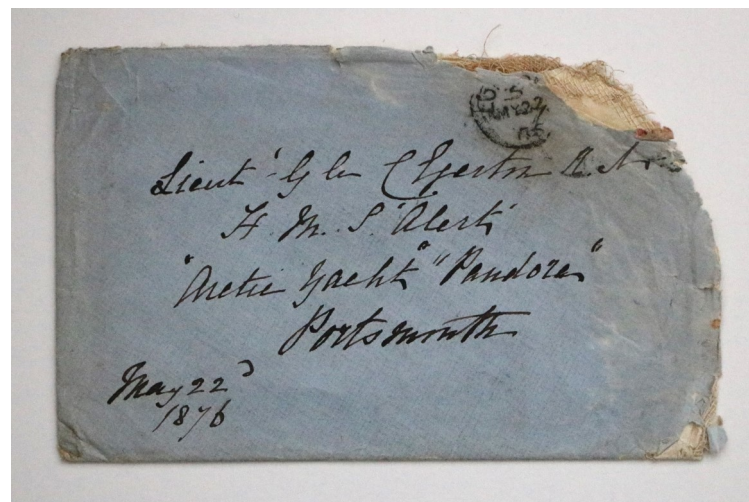 MY 22
Lieut G Le C Egerton R.N.
H.M.S. "Alert"
"Arctic Yacht" "Pandora"
Portsmouth
May 22d
1876